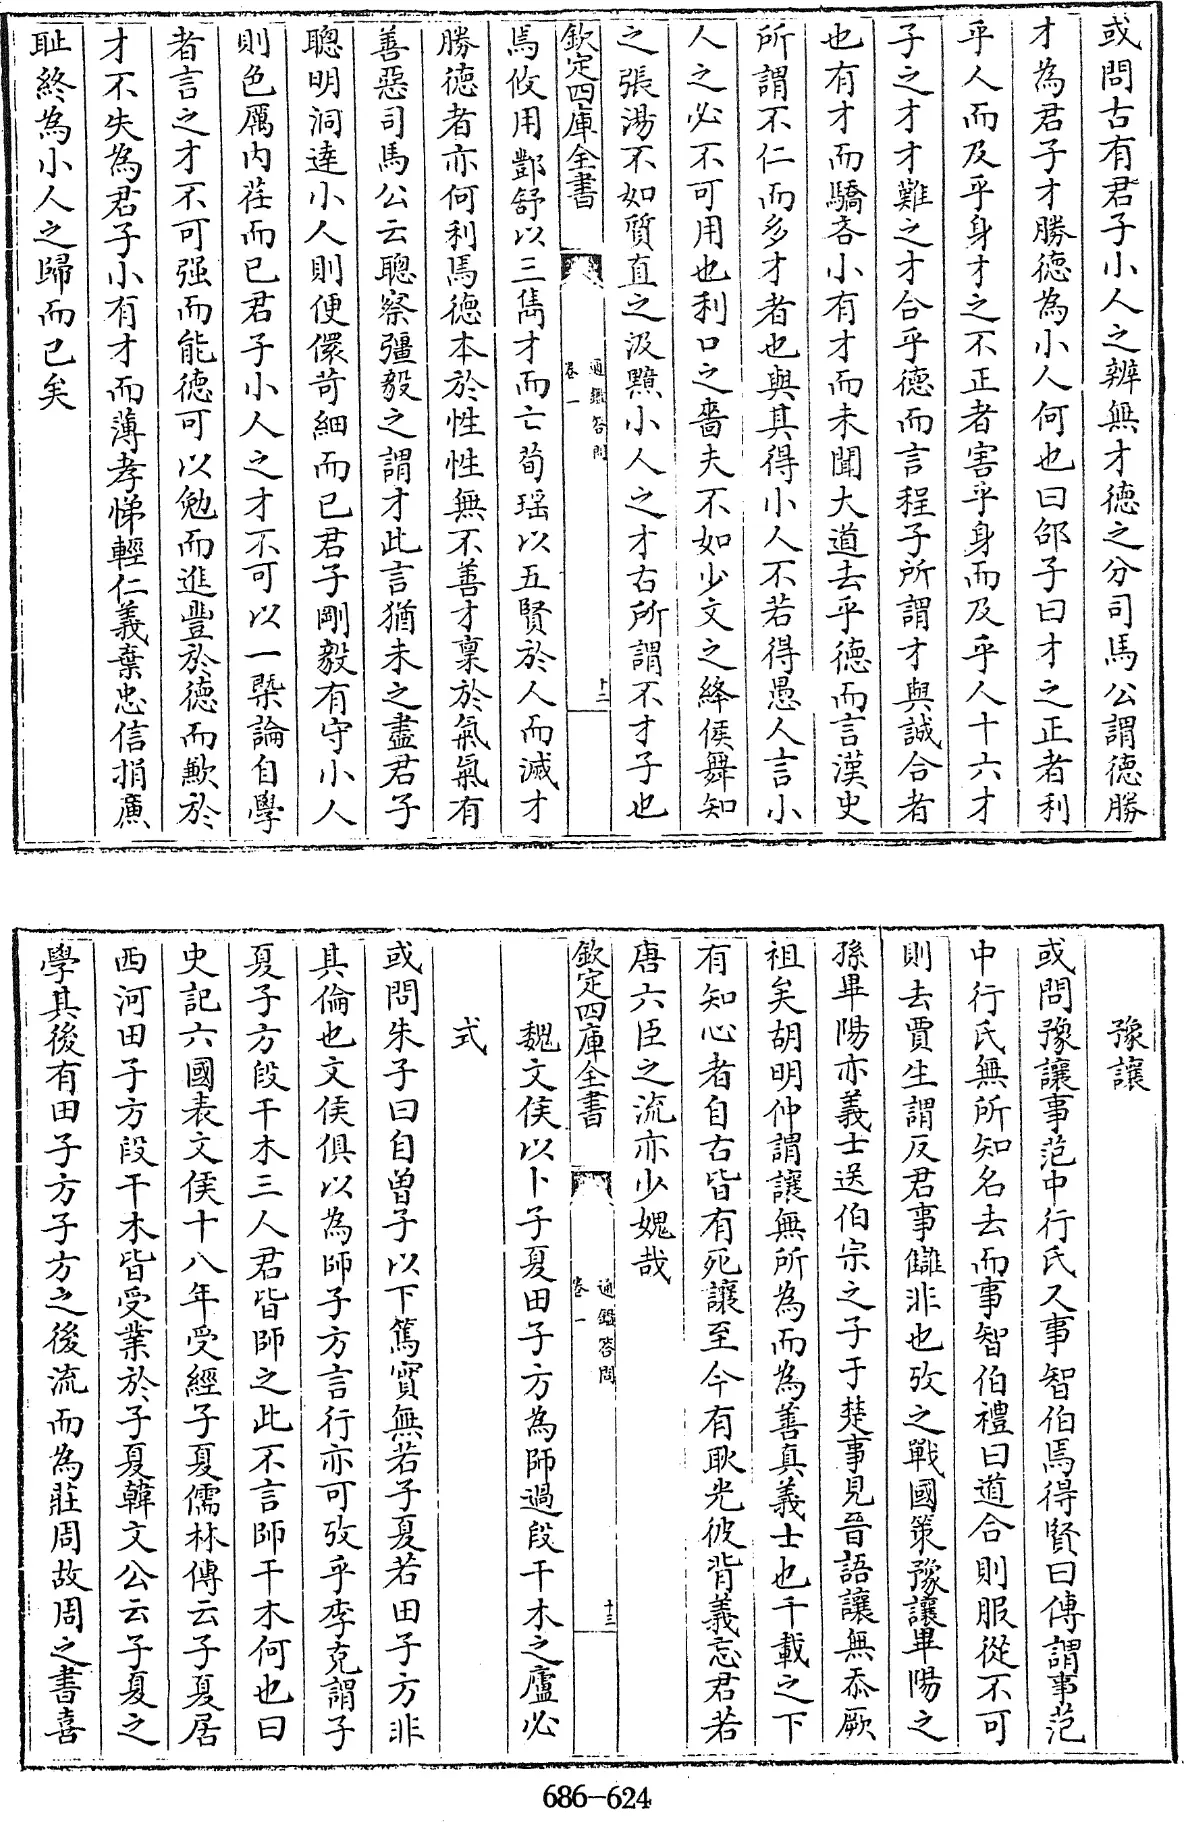 或問古有君子小人之辨無才德之分司馬公謂德勝
才為君子才勝德為小人何也曰邵子曰才之正者利
乎人而及乎身才之不正者害乎身而及乎人十六才
子之才才難之才合乎德而言程子所謂才與誠合者
也有才而驕吝小有才而未聞大道去乎德而言漢史
所謂不仁而多才者也與其得小人不若得愚人言小
人之必不可用也利口之嗇夫不如少文之絳侯舞知
之張湯不如質直之汲黯小人之才古所謂不才子也
欽定四庫全書
通鑑答問
卷一
十二
焉攸用酆舒以三雋才而亡荀瑶以五賢於人而滅才
勝德者亦何利焉德本於性性無不善才稟於氣氣有
善惡司馬公云聰察彊毅之謂才此言猶未之盡君子
聰明洞達小人則便儇苛細而已君子剛毅有守小人
則色厲内荏而已君子小人之才不可以一槩論自學
者言之才不可强而能德可以勉而進豐於德而歉於
才不失為君子小有才而薄孝悌輕仁義棄忠信捐廉
耻終為小人之歸而已矣
豫讓
或問豫讓事范中行氏又事智伯焉得賢曰傳謂事范
中行氏無所知名去而事智伯禮曰道合則服從不可
則去賈生謂反君事讎非也攷之戰國策豫讓畢陽之
孫畢陽亦義士送伯宗之子于楚事見晉語讓無忝厥
祖矣胡明仲謂讓無所為而為善真義士也千載之下
有知心者自古皆有死讓至今有耿光彼背義忘君若
唐六臣之流亦少媿哉
欽定四庫全書
通鑑答問
卷一
十三
魏文侯以卜子夏田子方為師過段干木之廬必
式
或問朱子曰自曾子以下篤實無若子夏若田子方非
其倫也文侯俱以為師子方言行亦可攷乎李克謂子
夏子方段干木三人君皆師之此不言師干木何也曰
史記六國表文侯十八年受經子夏儒林傳云子夏居
西河田子方段干木皆受業於子夏韓文公云子夏之
學其後有田子方子方之後流而為莊周故周之書喜
686-624